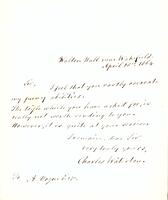 Walton Hall near Wakefield
April 15th 1864
Sir,
I feel that you vastly overrate
my puny abilities.
The trifle which you have asked for, is
really not worth sending to you.
However, it is quite at your service
I remain, dear Sir
very truly yours,
Charles Waterton.
To A. Esqr.